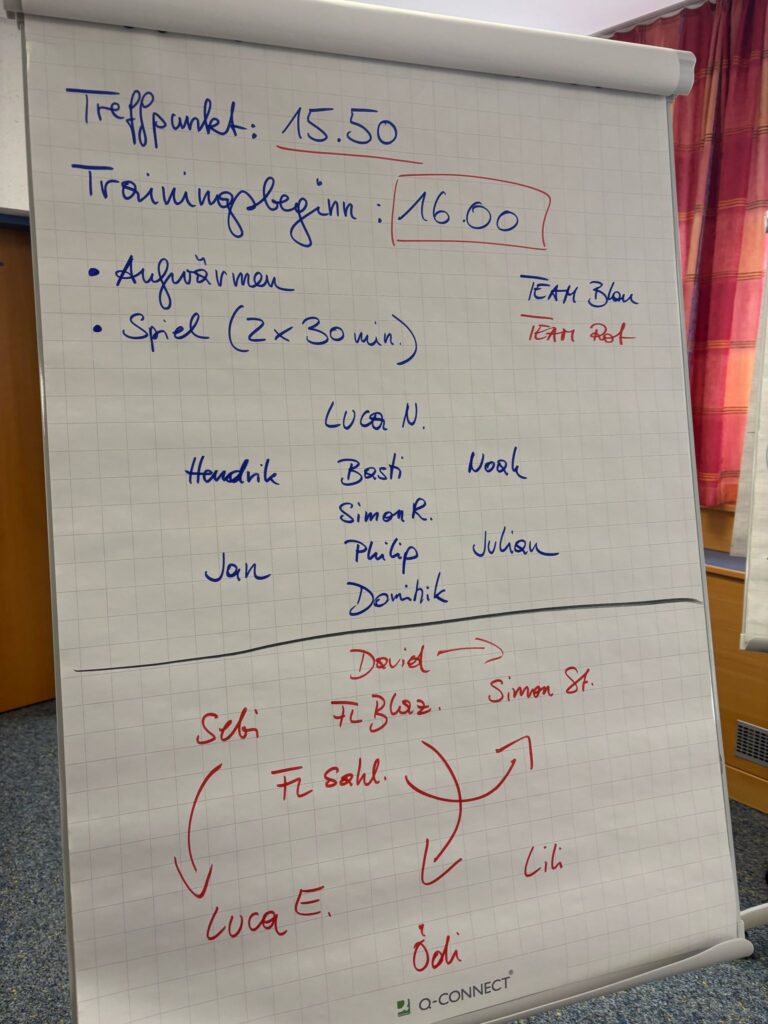 Treffpunkt: 15.50
Trainingsbeginn: 16.00
• Aufwärmen
• Spiel (2 x 30 min.)
TEAM Blau
TEAM Rot
Luca N.
Hendrik Basti Noah
Simon R.
Jan Philip Julian
Dominik
David
Sebi FL Blaz. Simon St.
FL Sahl.
Lili
Luca E.
Ödi
Q-CONNECT®